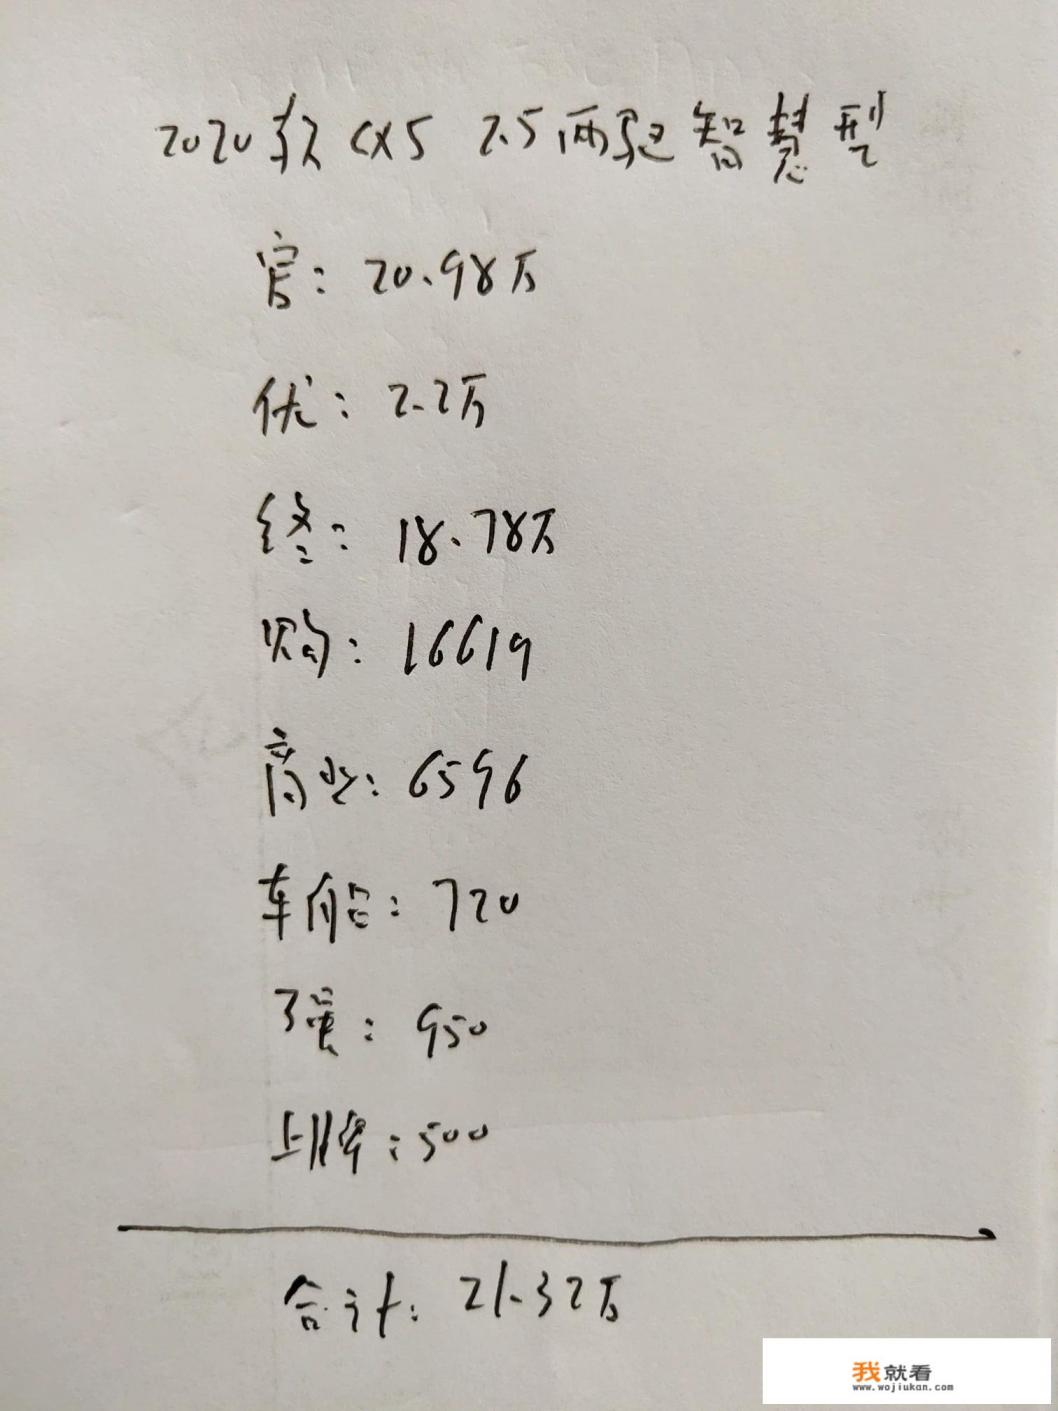 2020款 CX5 2.5两驱智慧型
官：20.98万
优：2.2万
终：18.78万
购：16619
商业：6596
车船：720
交强：950
上牌：500
合计：21.32万
我就看
www.wojiukan.com